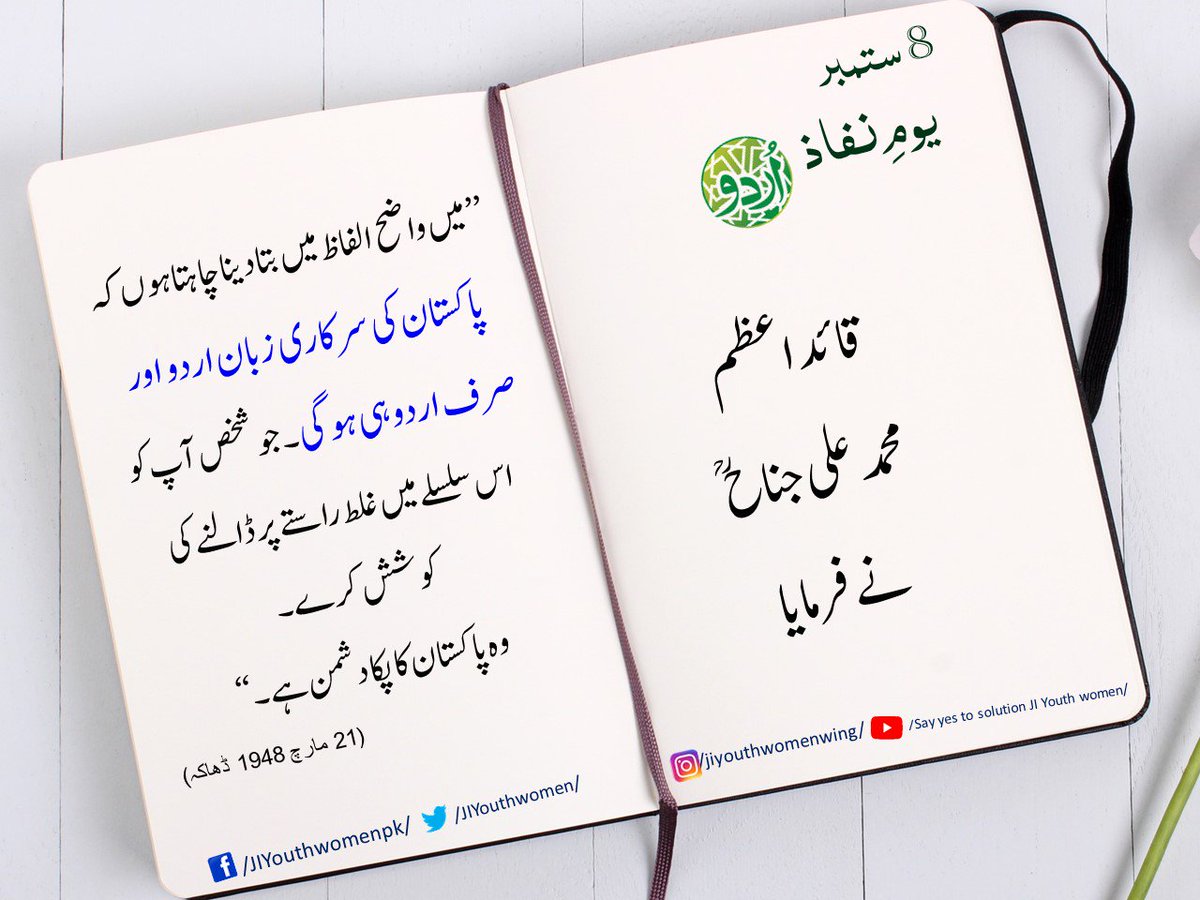 8 ستمبر
یومِ نفاذ اُردو
قائد اعظم
محمد علی جناحؒ
نے فرمایا
”میں واضح الفاظ میں بتا دینا چاہتا ہوں کہ
پاکستان کی سرکاری زبان اردو اور
صرف اردو ہی ہو گی۔ جو شخص آپ کو
اس سلسلے میں غلط راستے پر ڈالنے کی
کوشش کرے۔
وہ پاکستان کا پکا دشمن ہے۔“
(21 مارچ 1948 ڈھاکہ)
/JIYouthwomenpk/ /JIYouthwomen/
/jiyouthwomenwing/ /Say yes to solution JI Youth women/